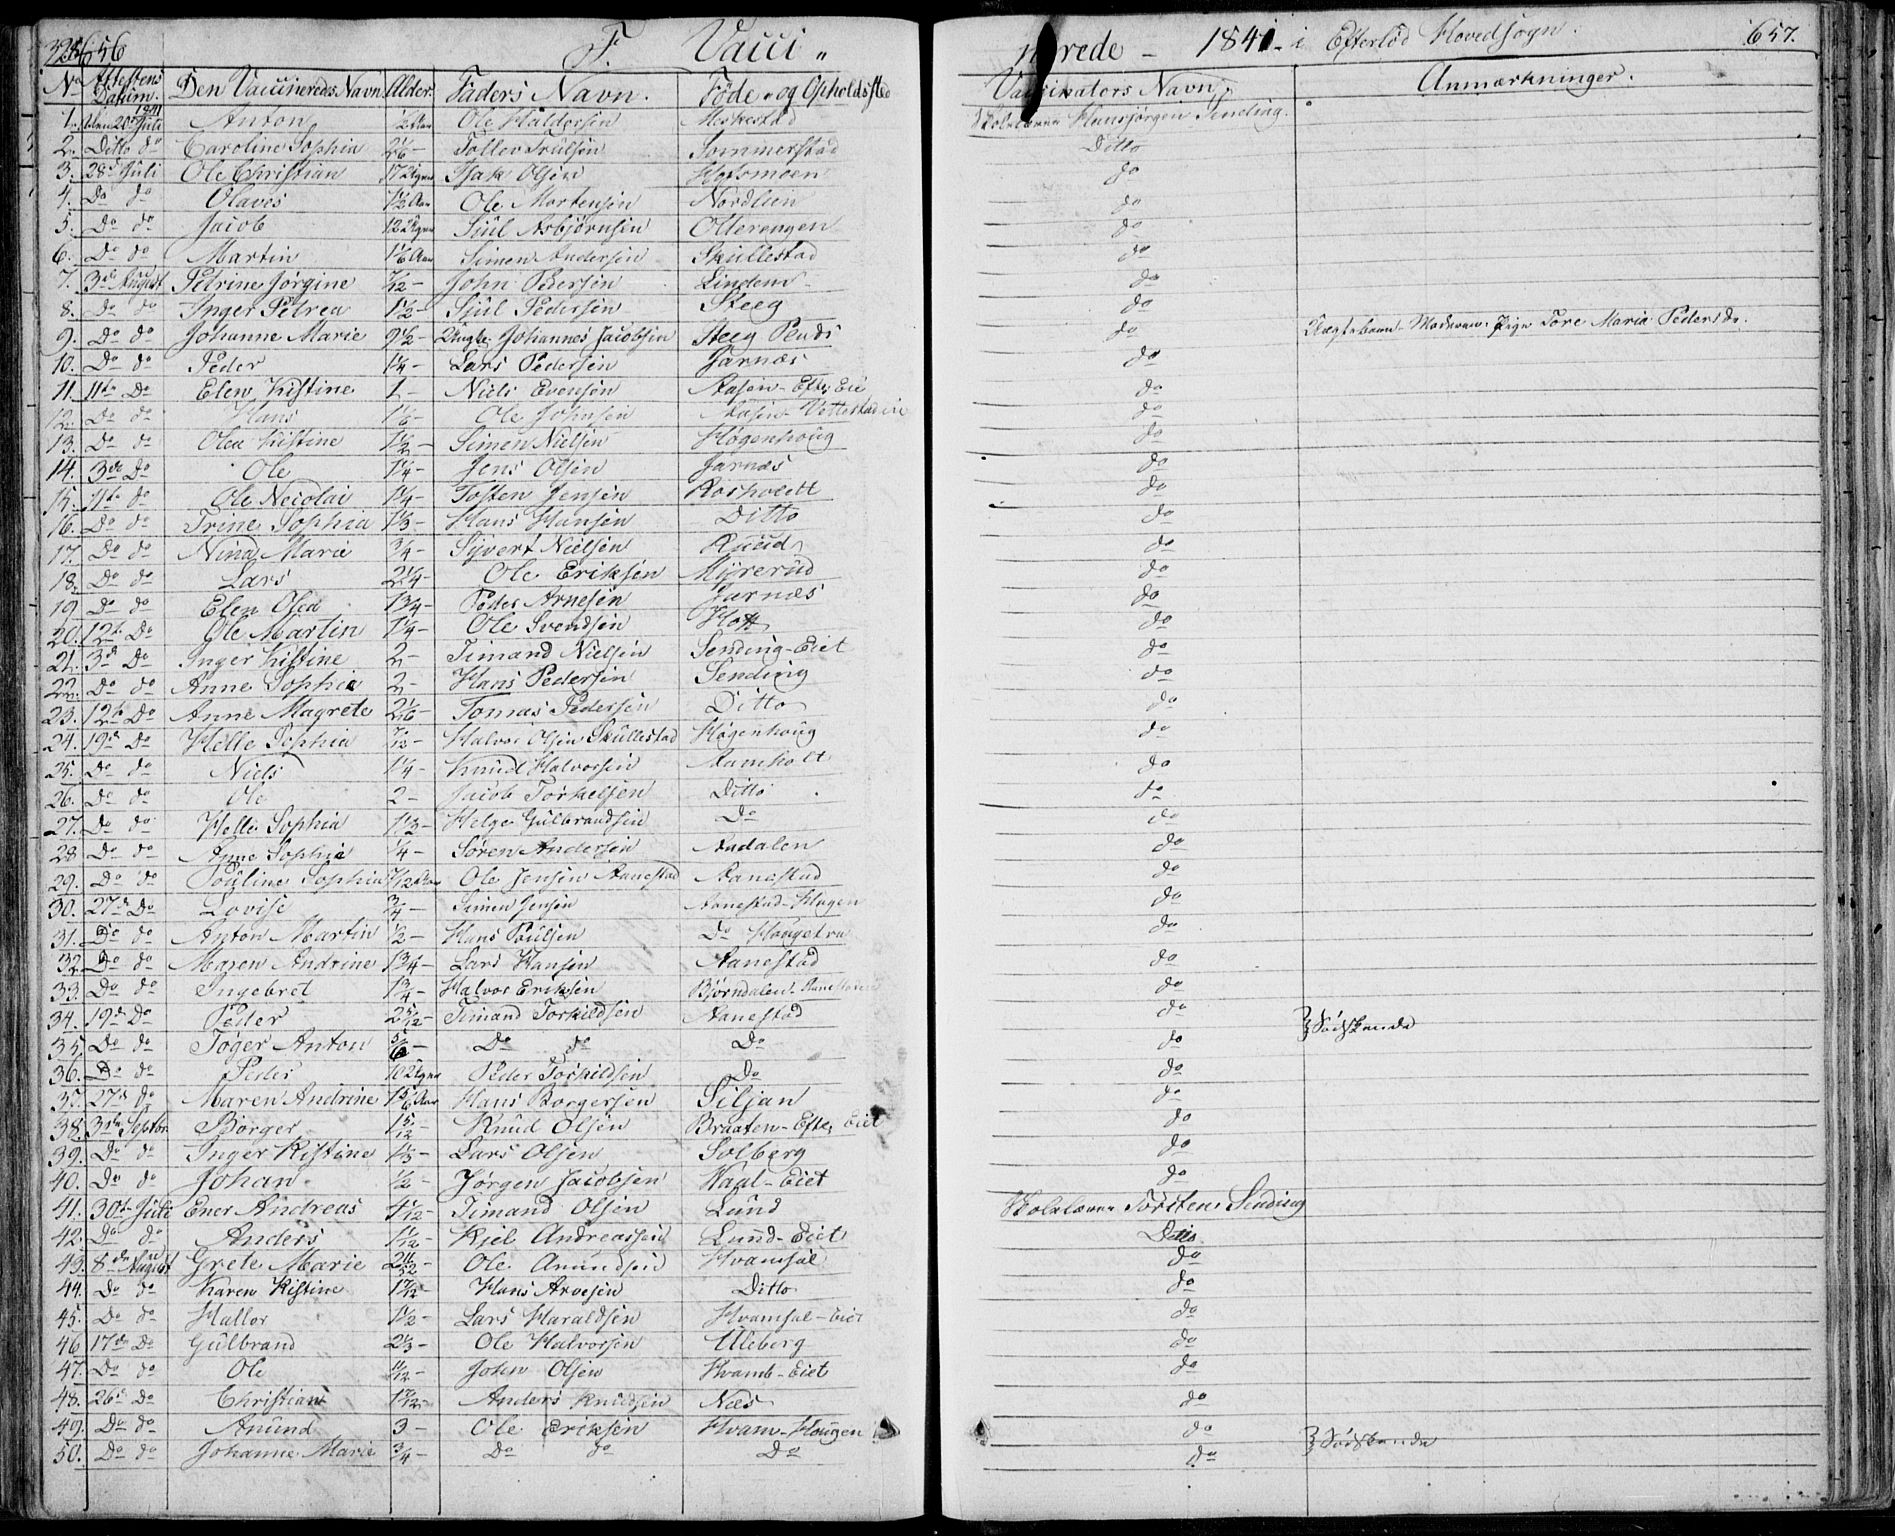 656 F. Vacci„ nerede – 1841 – i Eftelød Hovedsogn. 657.
No Attestens Datum. Den Vaccineredes Navn. Alder. Faders Navn. Føde- og Opholdssted Vaccinators Navn. Anmærkninger.
1. Juli Anton ½ Aar Ole Haldorsen Heskestad Skolelærer Hansjørgen Sending.
2. Ditto do Caroline Sophia 2 1/6 – Tollev Trulsen Sommerstad Ditto
3. 28de Juli Ole Christian 17 Ugr Isak Olsen do
4. Do do Olaves 1½ Aar Ole Mortensen Nordlien do
5. Do do Jacob 12 Ugr Sjul Asbjørnsen Olterengen do
6. Do do Martin 1 1/6 Aar Simen Andersen Skullestad do
7. 3de August Petrine Jørgine 7/12 – John Pedersen Linden do
8. Do do Inger Petrea 1½ – Sjul Pedersen Steeg do
9. Do do Johanne Marie 9½ – Johannes Jacobsen Steeg do Pige Tore Maria Pedersdr.
10. Do do Peder 1¼ – Lars Pedersen Jarnæs do
11. 11te Do Elen Kistine 1 – Niels Evensen Aasen – Efte, Eie do
12. Do do Hans 1 1/6 – Ole Johnsen Aasen – Vettestad eie do
13. Do do Olea Kistine 1½ – Simen Nielsen Høgenhoug do
14. 3de Do Ole 1¼ – Jens Olsen Jarnæs do
15. 11te do Ole Necolai 1¼ – Tosten Jensen Rosholdt do
16. Do do Trine Sophia 1⅓ – Hans Hansen Ditto do
17. Do do Nina Marie ¾ – Syvert Nielsen Ruud do
18. Do do Lars 2¼ – Ole Eriksen Myrerud do
19. Do do Elen Olea 1¾ – Peder Arnesen Jarnæs do
20. 12te Do Ole Martin 1¼ – Ole Svendsen do
21. 3de Do Inger Kistine 2 – Timand Nielsen Sending-Eiet do
22. Do do Anne Sophia 2 – Hans Pedersen Sending do
23. 12te Do Anne Magrete 2 1/6 – Tomas Pedersen Ditto do
24. 19de Do Helle Sophia 7/12 – Halvor Olsen Skullestad Høgenhoug do
25. Do do Niels 1¼ – Knud Halvorsen Aamholt do
26. Do do Ole 2 – Jacob Torkelsen Ditto do
27. Do do Helle Sophia 1⅓ – Helge Gulbrandsen Do do
28 Do do Anne Sophie ¼ – Søren Andersen Aadalen do
29. Do do Pouline Sophia 7/12 Aar Ole Jensen Aanestad Aanestad do
30. 27de Do Lovise ¾ – Simen Jensen Aanestad-Hagen do
31. Do do Anton Martin ½ – Hans Poulsen Do do
32. Do do Maren Andrine 1¾ – Lars Hansen Aanestad do
33. Do do Ingebret 1¾ – Halvor Eriksen Bjørndalen do
34. 19de Do Peder 2 5/12 – Timand Torkildsen Aanestad do } Sødskende
35. Do do Toger Anton Do do Do do
36. Do do Peder 10 Ugr Peder Torkildsen Do do
37. 27de do Maren Andrine 1 5/6 Aar Hans Borgersen Siljan do
38. Septbr Børger 1 5/12 – Knud Olsen Braaten – Efte, Eiet do
39. Do do Inger Kistine 1⅓ – Lars Olsen Solberg do
40. Do do Johan ½ – Jørgen Jacobsen Eiet do
41. 30te Juli Ener Andreas Timand Olsen Lund Skolelærer Torsten Sending
42. Do do Anders 1 1/12 – Kjel Andreassen Lund-Eiet Ditto
43. 8de August Grete Marie Ole Anundsen Hvamsal do
44. Do do Karen Kistine 1 7/12 – Hans Arvesen Ditto do
45. Do do Haltor 1½ – Lars Haraldsen Hvamsal-Eiet do
46 17de Do Gulbrand 2⅓ – Ole Halvorsen Uleberg do
47. Do do Ole 11/12 – John Olsen Hvamb-Eiet do
48. 26de Do Christian 1 7/12 – Anders Knudsen Næs do
49. Do do Anund 3 – Ole Eriksen Hvam-Hougen do } Sødskende
50. Do do Johanne Marie ¾ – Do do Do do